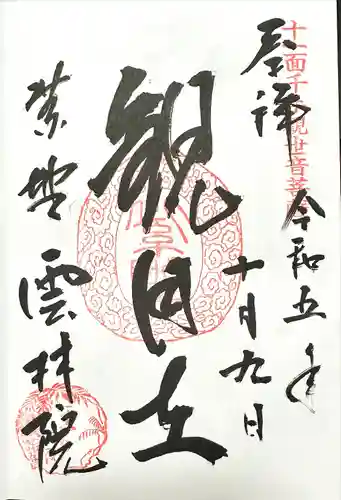 十一面千手観世音菩薩
奉拝
令和五年
十月九日
観月文
紫野
雲林院